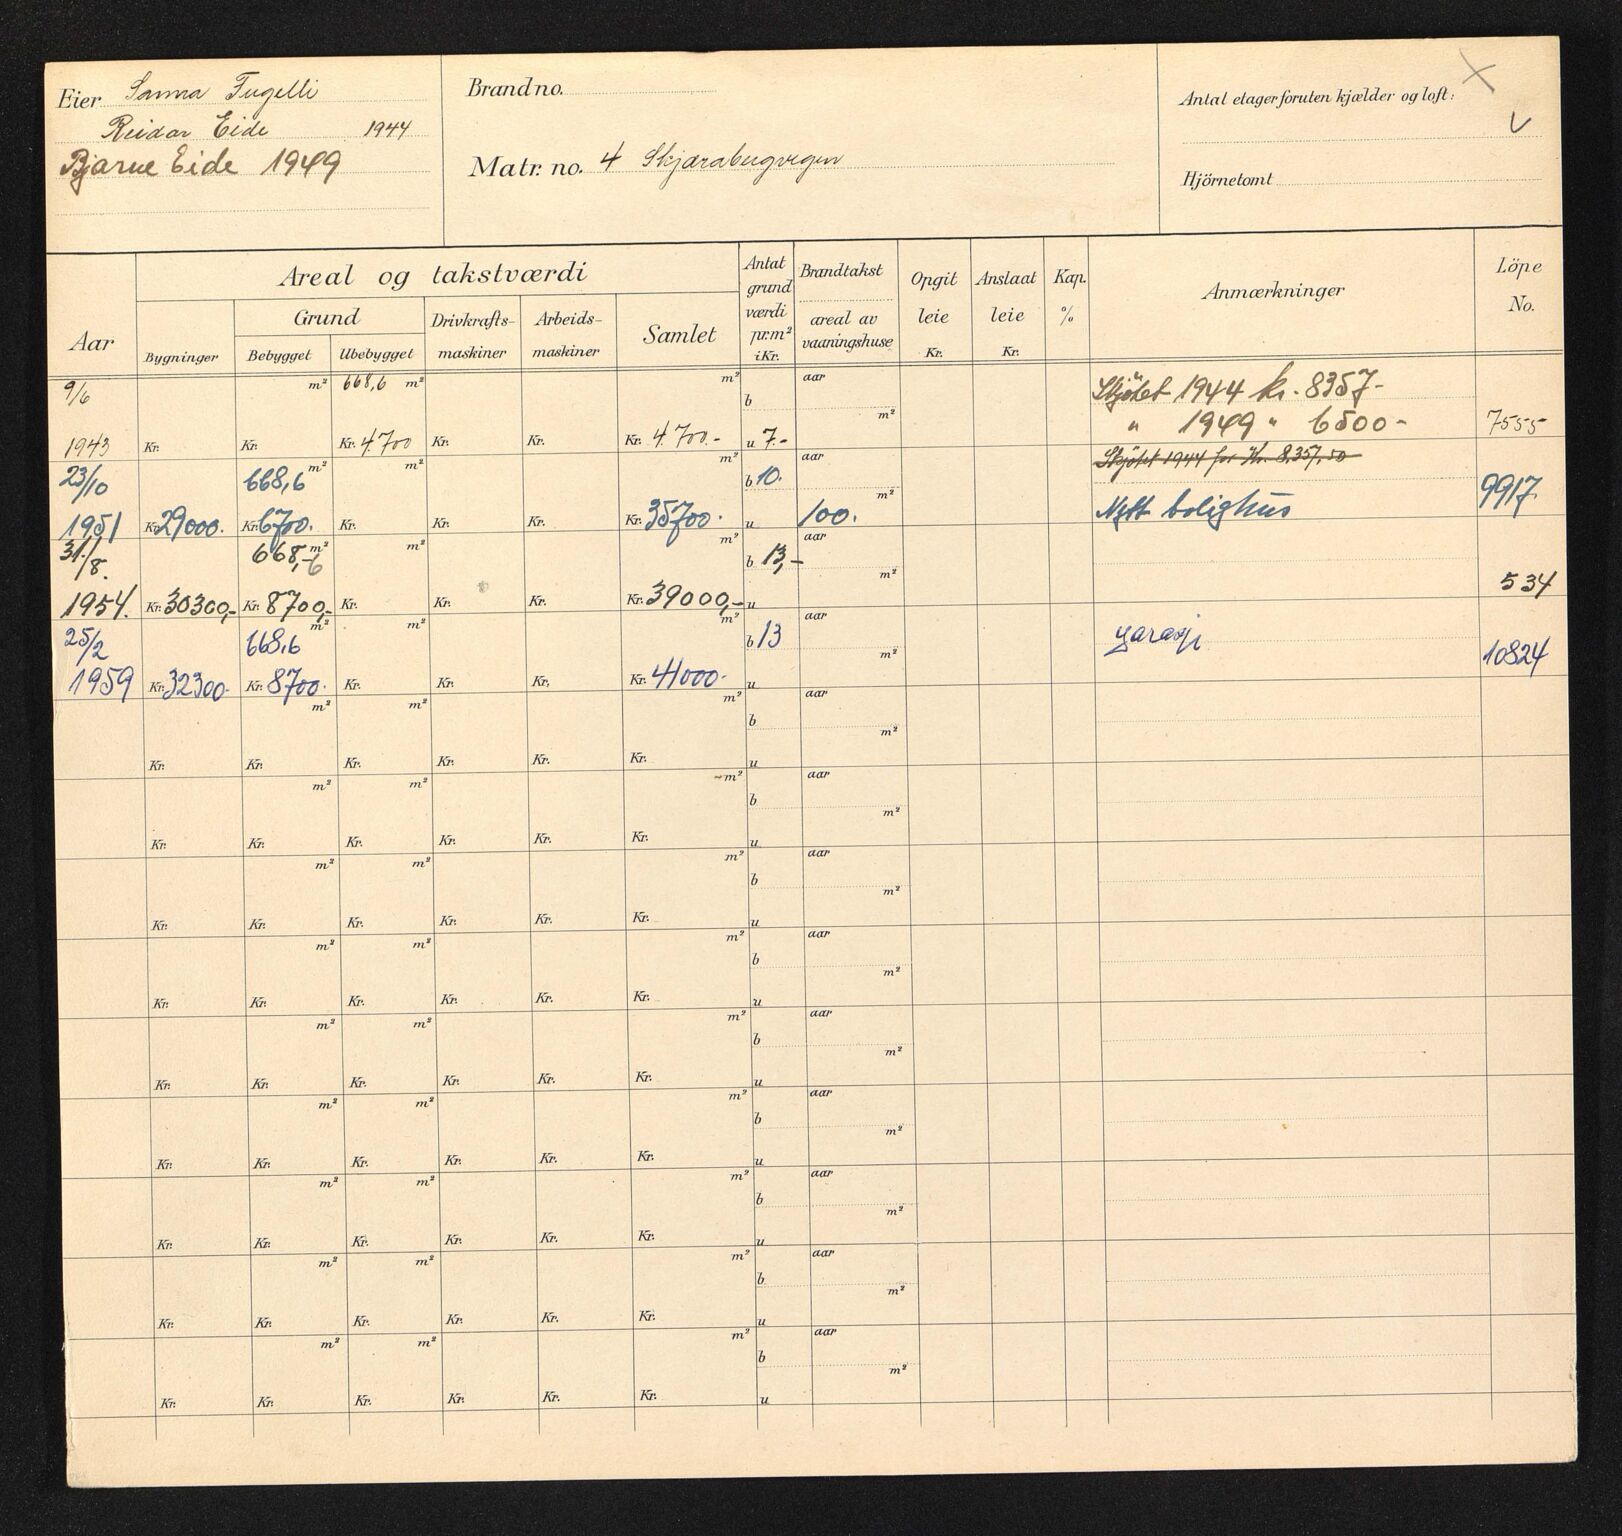 Eier Sanna Fugelli
Reidar Eide 1944
Bjarne Eide 1949
Brandno.
Matr. no. 4 Skjærabergvegen
Antal etager foruten kjælder og loft:
Hjörnetomt
Aar
Areal og takstværdi
Bygninger
Grund
Bebygget
Ubebygget
Drivkrafts-
maskiner
Arbeids-
maskiner
Samlet
Antat
grund
værdi
pr. m²
i Kr.
Brandtakst
areal av
vaaningshuse
Opgit
leie
Kr.
Anslaat
leie
Kr.
Kap.
%
Anmærkninger
Löpe
No.
9/6 m² 668,6 m² m² b aar Skjötet 1944 kr. 8357-
m² " 1949 " 6500-
1943 Kr. Kr. Kr. 4.700 Kr. Kr. Kr. 4.700.- u 7.- 7555
Skjötet 1944 for Kr. 8.357,50
23/10 668,6 m² m² m² b 10. aar
m² Nytt bolighus
1951 Kr. 29000. Kr. 6700. Kr. Kr. Kr. Kr. 35700. u 100. 9917.
31/8. 668,6 m² m² m² b 13,- aar
m²
1954. Kr. 30300,- Kr. 8700,- Kr. Kr. Kr. Kr. 39000,- u 534
25/2 668.6 m² m² m² b 13 aar garasje
m²
1959 Kr. 32300. Kr. 8700. Kr. Kr. Kr. Kr. 41000. u 10824
m² m² m² b aar
m²
Kr. Kr. Kr. Kr. Kr. Kr. u
m² m² m² b aar
m²
Kr. Kr. Kr. Kr. Kr. Kr. u
m² m² m² b aar
m²
Kr. Kr. Kr. Kr. Kr. Kr. u
m² m² m² b aar
m²
Kr. Kr. Kr. Kr. Kr. Kr. u
m² m² m² b aar
m²
Kr. Kr. Kr. Kr. Kr. Kr. u
m² m² m² b aar
m²
Kr. Kr. Kr. Kr. Kr. Kr. u
m² m² m² b aar
m²
Kr. Kr. Kr. Kr. Kr. Kr. u
m² m² m² b aar
m²
Kr. Kr. Kr. Kr. Kr. Kr. u
m² m² m² b aar
m²
Kr. Kr. Kr. Kr. Kr. Kr. u